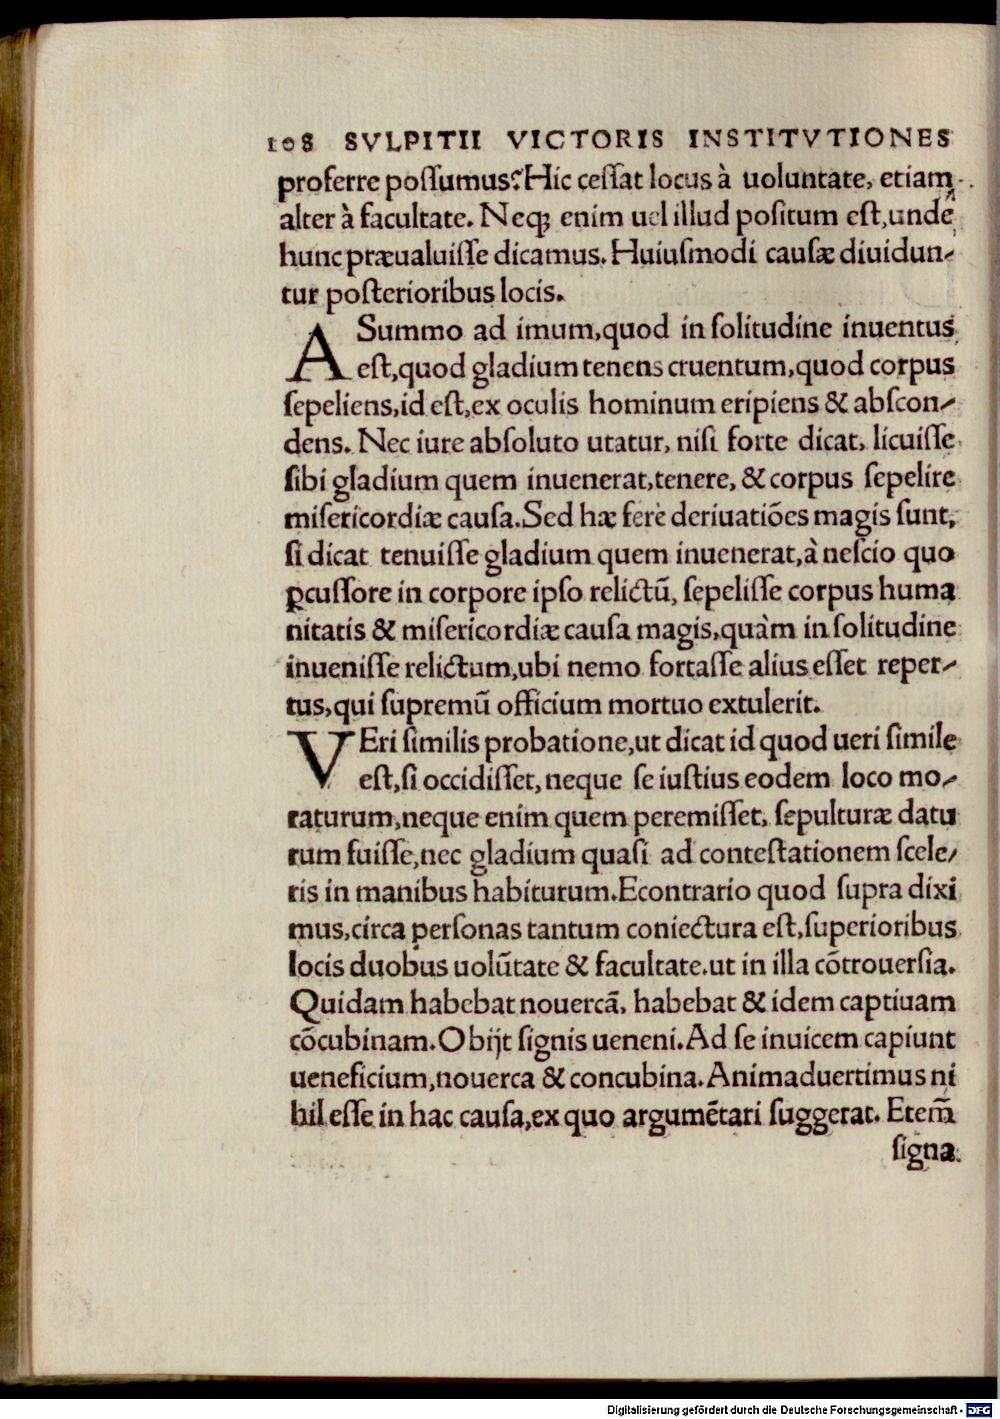 108 SVLPITII VICTORIS INSTITVTIONES
proferre possumus? Hic cessat locus à uoluntate, etiam
alter à facultate. Neqꝫ enim uel illud positum est, unde
hunc præualuisse dicamus. Huiusmodi causæ diuidun-
tur posterioribus locis.
A Summo ad imum, quod in solitudine inuentus
est, quod gladium tenens cruentum, quod corpus
sepeliens, id est, ex oculis hominum eripiens & abscon-
dens. Nec iure absoluto utatur, nisi forte dicat, licuisse
sibi gladium quem inuenerat, tenere, & corpus sepelire
misericordiæ causa. Sed hæ ferè deriuatiões magis sunt,
si dicat tenuisse gladium quem inuenerat, à nescio quo
ꝑcussore in corpore ipso relictũ, sepelisse corpus huma
nitatis & misericordiæ causa magis, quàm in solitudine
inuenisse relictum, ubi nemo fortasse alius esset reper-
tus, qui supremũ officium mortuo extulerit.
VEri similis probatione, ut dicat id quod ueri simile
est, si occidisset, neque se iustius eodem loco mo-
raturum, neque enim quem peremisset, sepulturæ datu
rum fuisse, nec gladium quasi ad contestationem scele-
ris in manibus habiturum. Econtrario quod supra dixi
mus, circa personas tantum coniectura est, superioribus
locis duobus uolũtate & facultate. ut in illa cõtrouersia.
Quidam habebat nouercã, habebat & idem captiuam
cõcubinam. Obijt signis ueneni. Ad se inuicem capiunt
ueneficium, nouerca & concubina. Animaduertimus ni
hil esse in hac causa, ex quo argumẽtari suggerat. Etem̃
signa
Digitalisierung gefördert durch die Deutsche Forschungsgemeinschaft - DFG